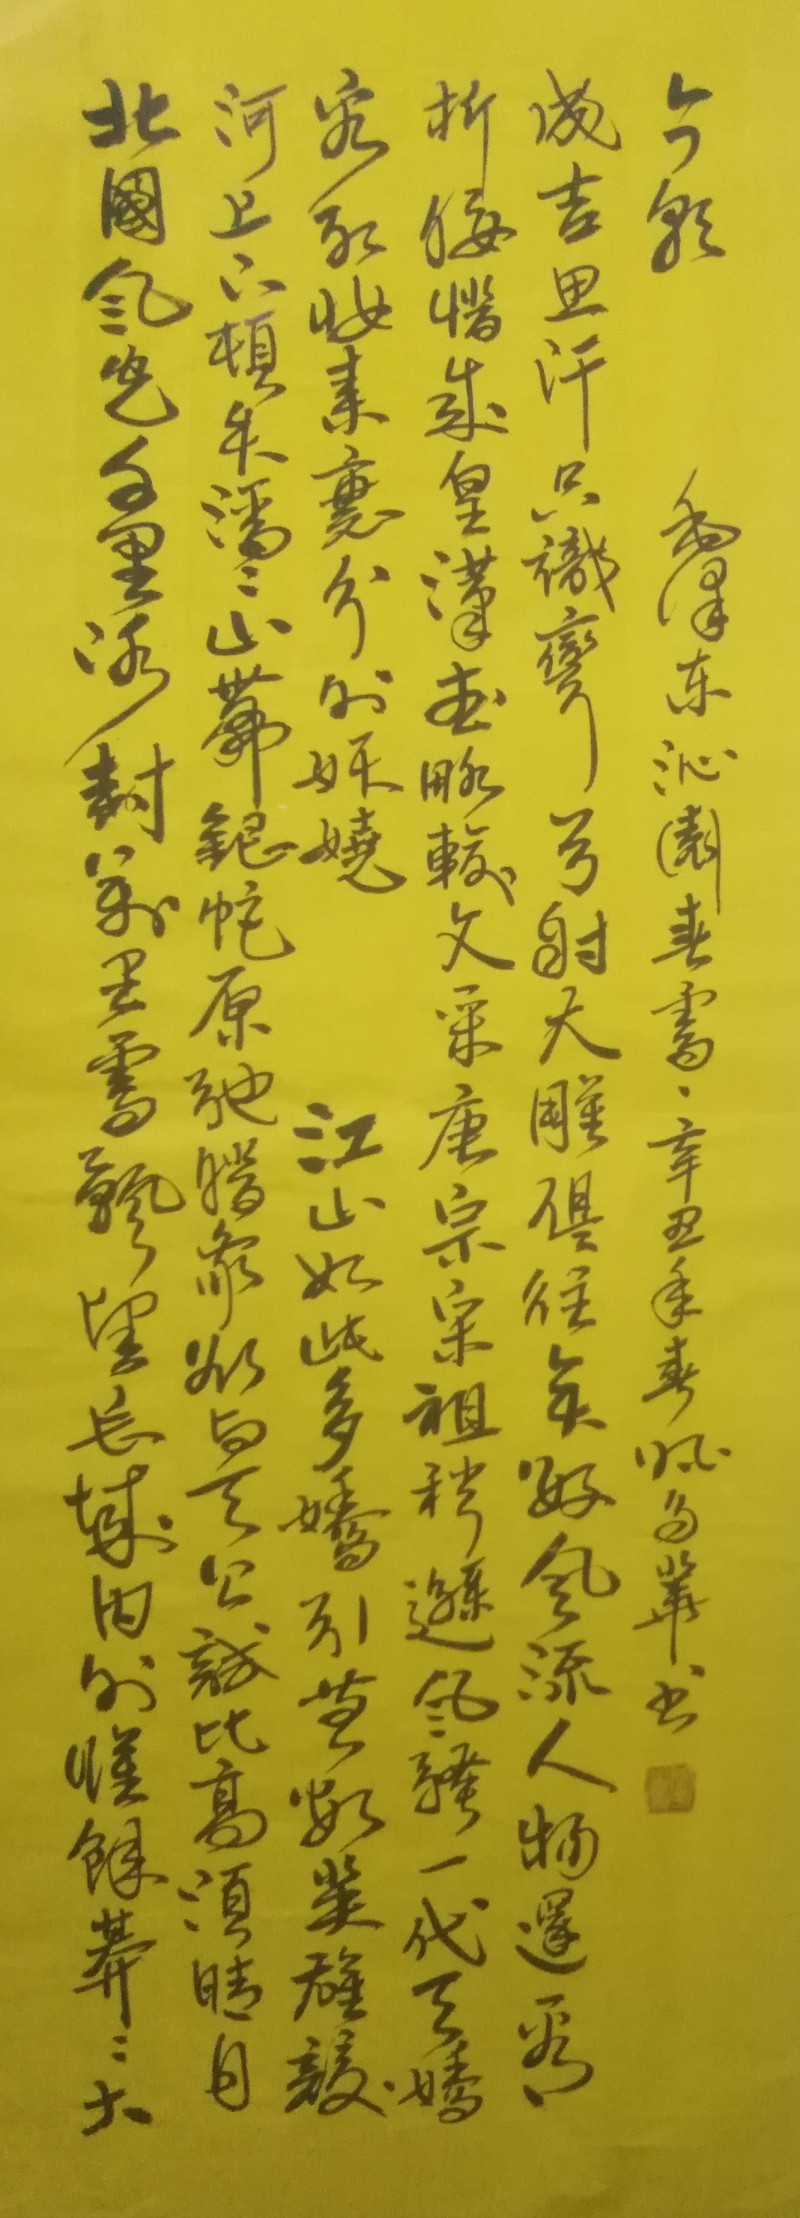 北國風光千里冰封萬里雪飄望長城内外惟餘莽〻大
河上下頓失滔〻山舞銀蛇原馳蠟象欲與天公試比高須晴日
看紅妝素裹分外妖嬈 江山如此多嬌引無數英雄競
折腰惜秦皇漢武略輸文采唐宗宋祖稍遜風騷一代天嬌
成吉思汗只識彎弓射大雕俱往矣數風流人物還看
今朝 毛泽东沁園春雪、辛丑年春華书